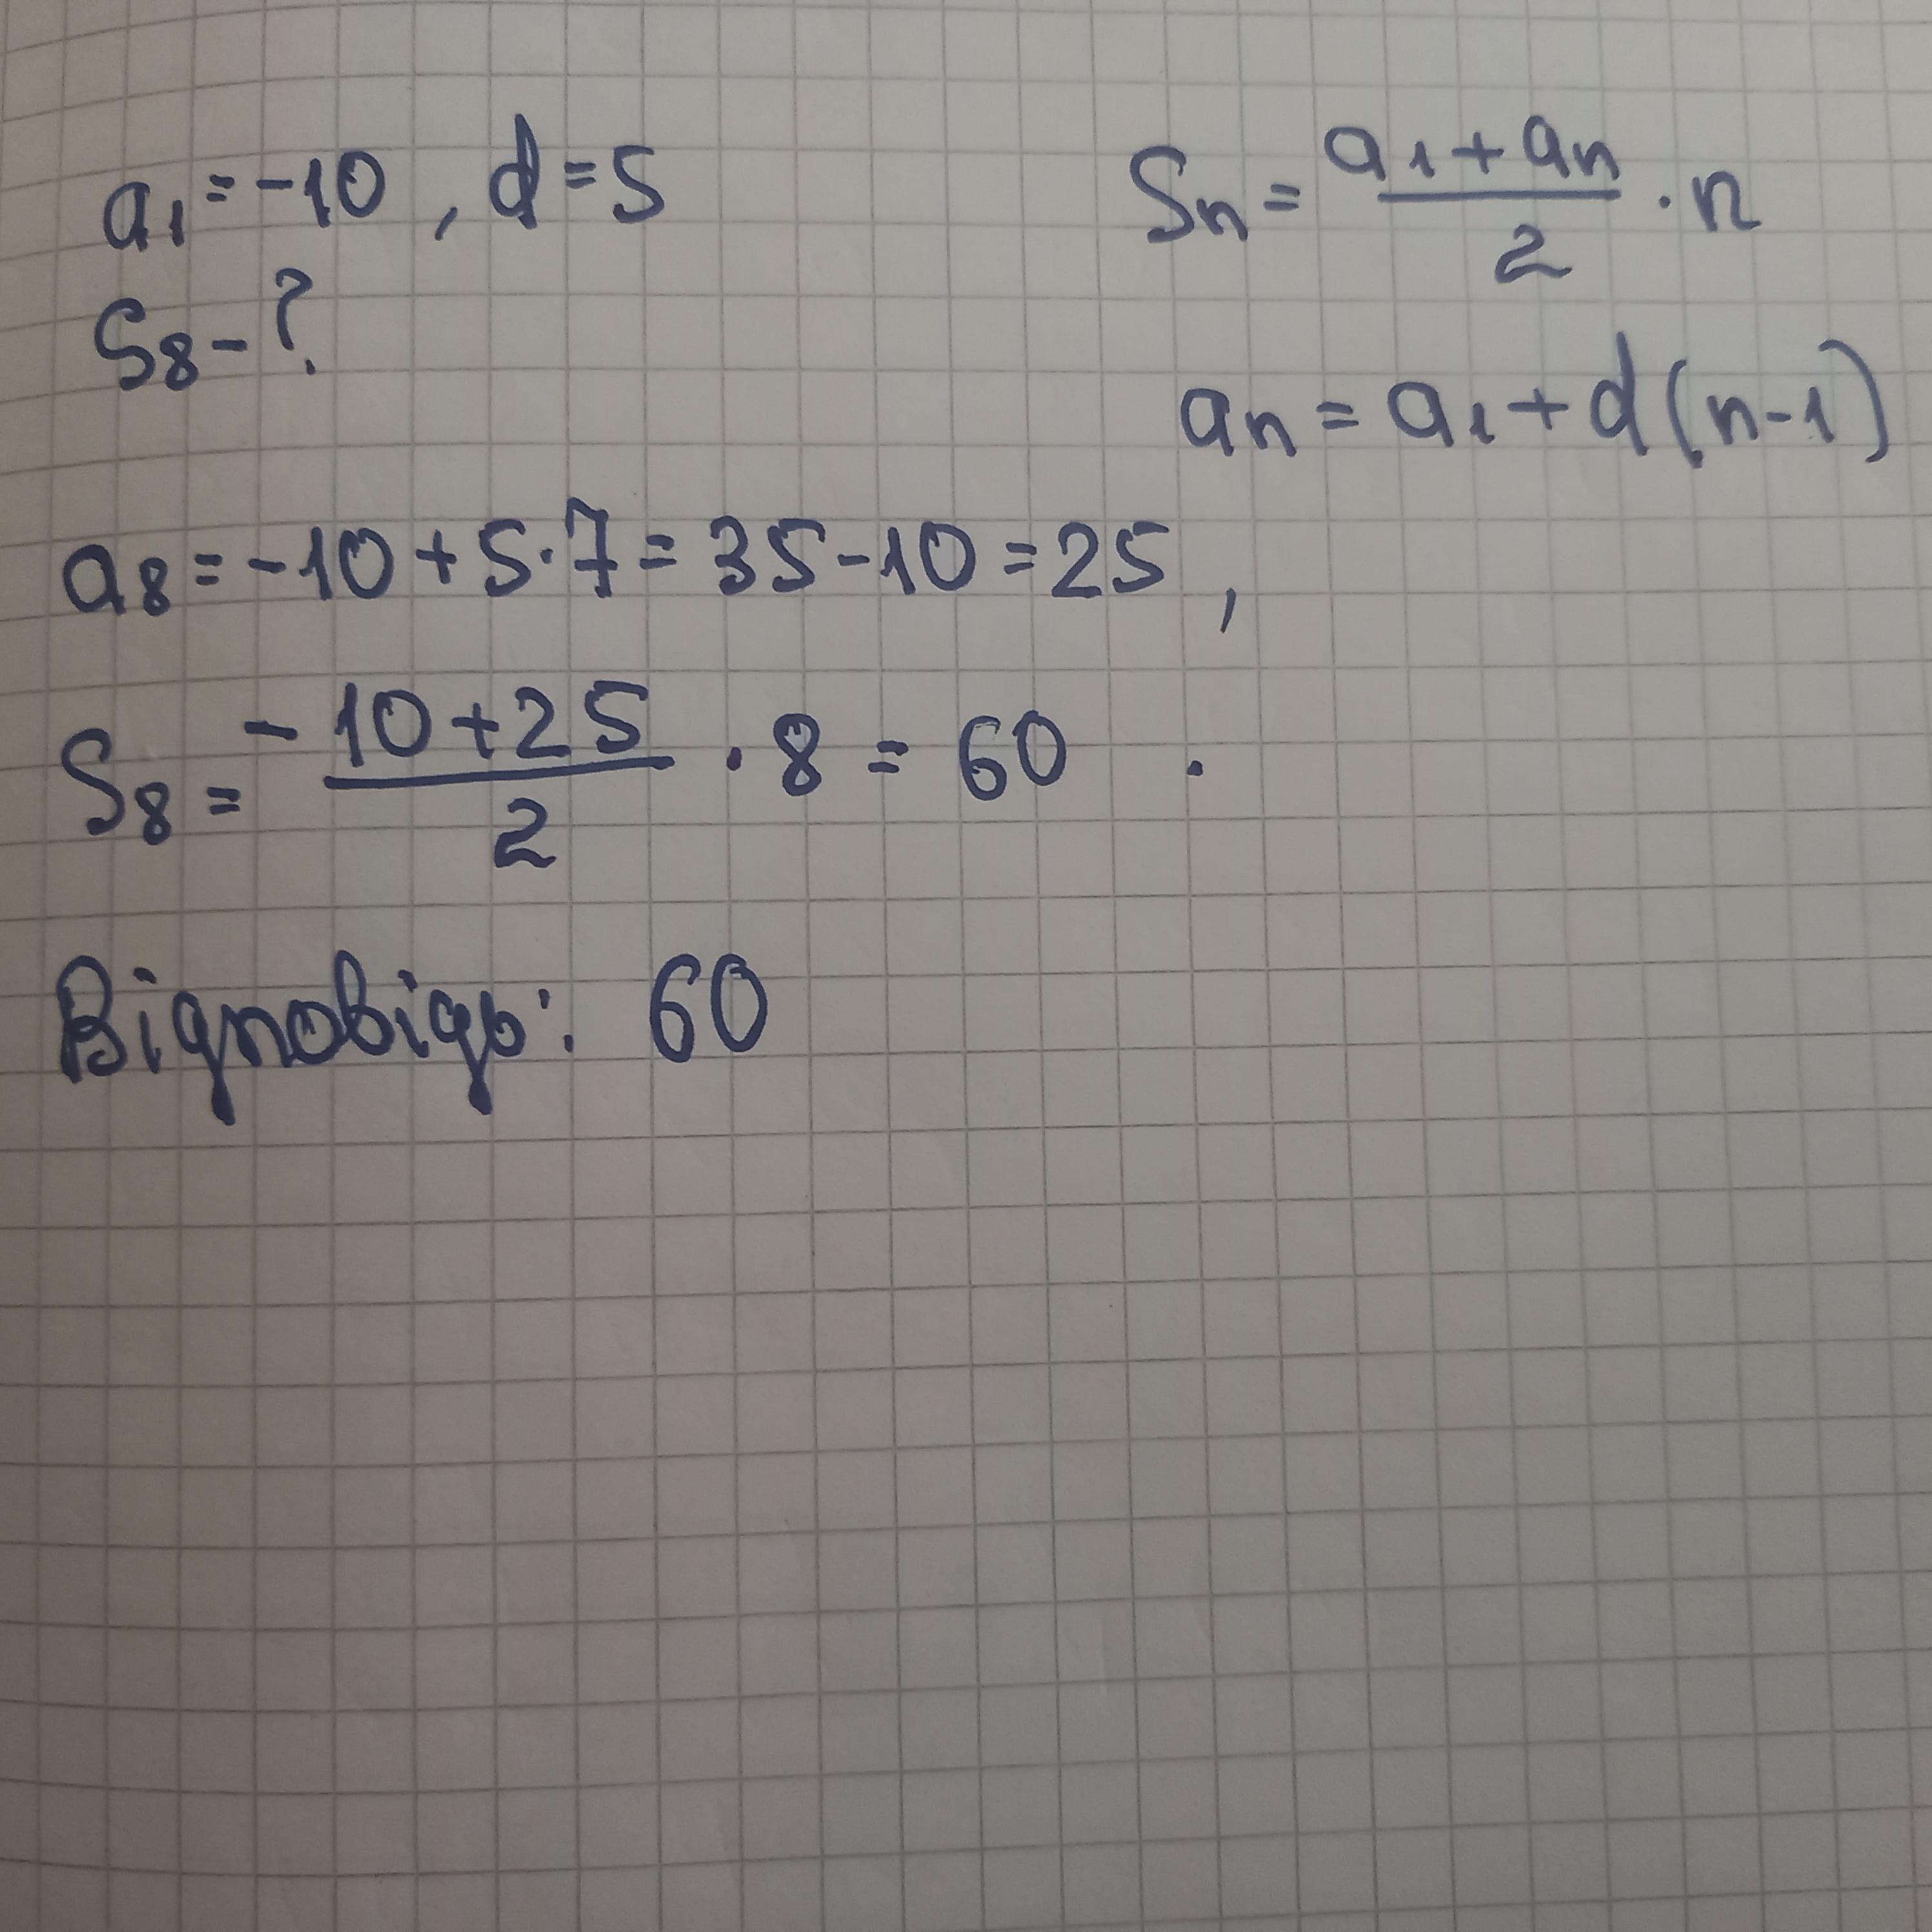 a₁ = -10 , d = 5
Sₙ = (a₁ + aₙ)/2 · n
S₈ - ?
aₙ = a₁ + d(n-1)
a₈ = -10 + 5·7 = 35 - 10 = 25 ,
S₈ = (-10 + 25)/2 · 8 = 60 .
Відповідь: 60